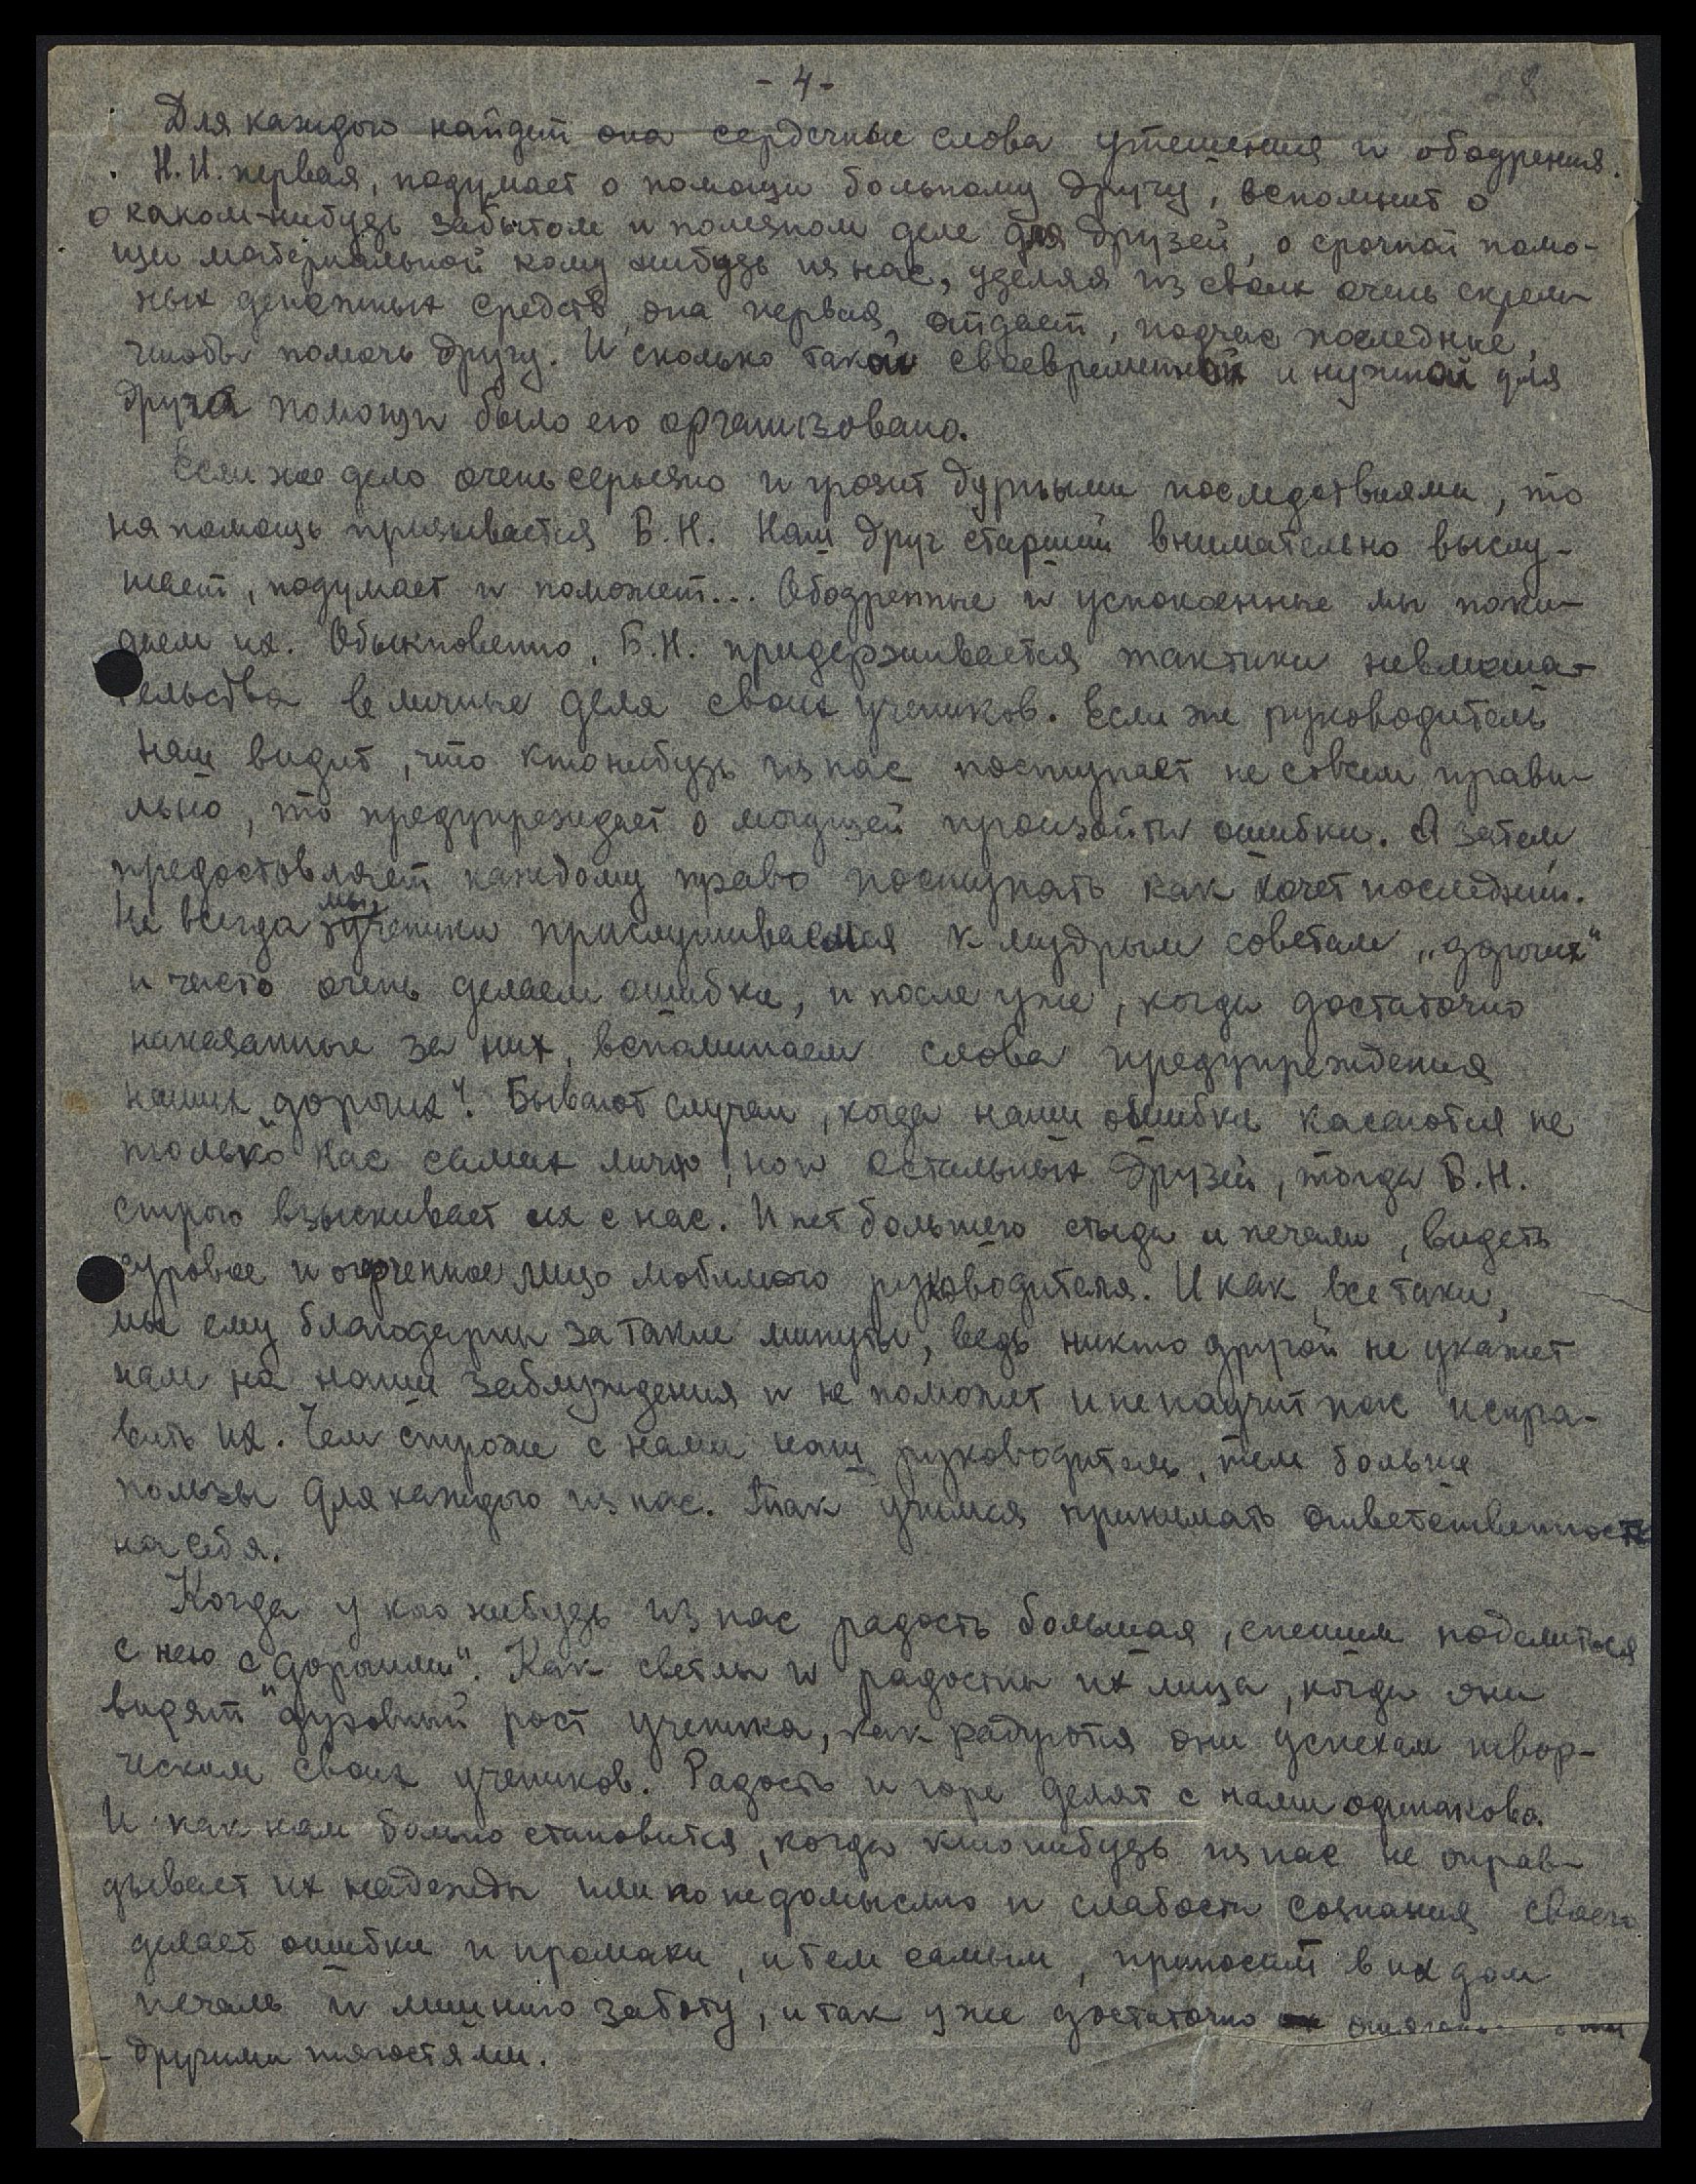 - 4 -
28
Для каждого найдет она сердечные слова утешения и ободрения.
Н.И. первая, подумает о помощи больному другу, вспомнит о
о каком-нибудь забытом и полезном деле для друзей, о срочной помо-
щи материальной кому нибудь из нас, уделяя из своих очень скром-
ных денежных средств, она первая, отдает, подчас последние,
чтобы помочь другу. И сколько такой своевременной и нужной для
друга помощи было ею организовано.
Если же дело очень серьезно и грозит дурными последствиями, то
на помощь призывается Б.Н. Наш друг старший внимательно выслу-
шает, подумает и поможет... Ободренные и успокоенные мы поки-
даем их. Обыкновенно, Б.Н. придерживается тактики невмеша-
тельства в личные дела своих учеников. Если же руководитель
наш видит, что кто нибудь из нас поступает не совсем прави-
льно, то предупреждает о могущей произойти ошибки. А затем
предоставляет каждому право поступать как хочет последний.
Не всегда мы, ученики прислушиваемся к мудрым советам „дорогих"
и часто очень делаем ошибки, и после уже, когда достаточно
наказанные за них, вспоминаем слова предупреждения
наших „дорогих". Бывают случаи, когда наши ошибки касаются не
только нас самих лично, но и остальных друзей, тогда Б.Н.
строго взыскивает их с нас. И нет большего стыда и печали, видеть
суровое и огорченное лицо любимого руководителя. И как, все таки,
мы ему благодарны за такие минуты, ведь никто другой не укажет
нам на наши заблуждения и не поможет и не научит нас испра-
вить их. Чем строже с нами наш руководитель, тем больше
пользы для каждого из нас. Так учимся принимать ответственность
на себя.
Когда у кого нибудь из нас радость большая, спешим поделиться
с нею с „дорогими". Как светлы и радостны их лица, когда они
видят духовный рост ученика, как радуются они успехам твор-
ческим своих учеников. Радость и горе делят с нами одинаково.
И как нам больно становится, когда кто нибудь из нас не оправ-
дывает их надежды или по недомыслию и слабости сознания своего
делает ошибки и промахи, и тем самым, приносит в их дом
печаль и лишнюю заботу, и так уже достаточно
другими тягостями.